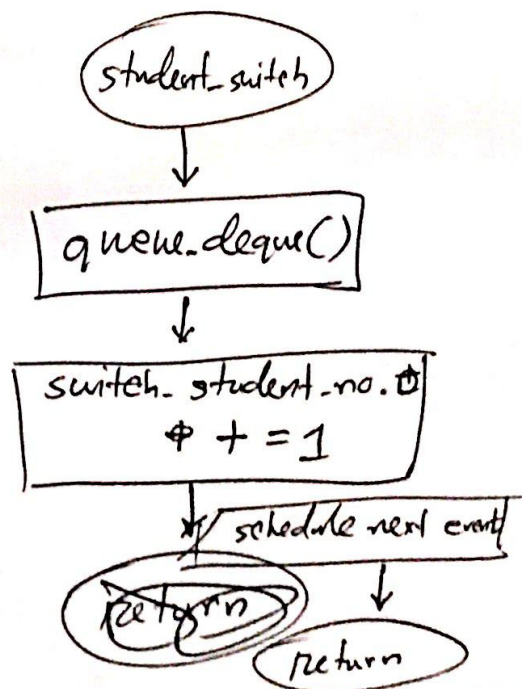 student_switch
queue_deque()
switch_student_no.
+ = 1
schedule next event
return
return